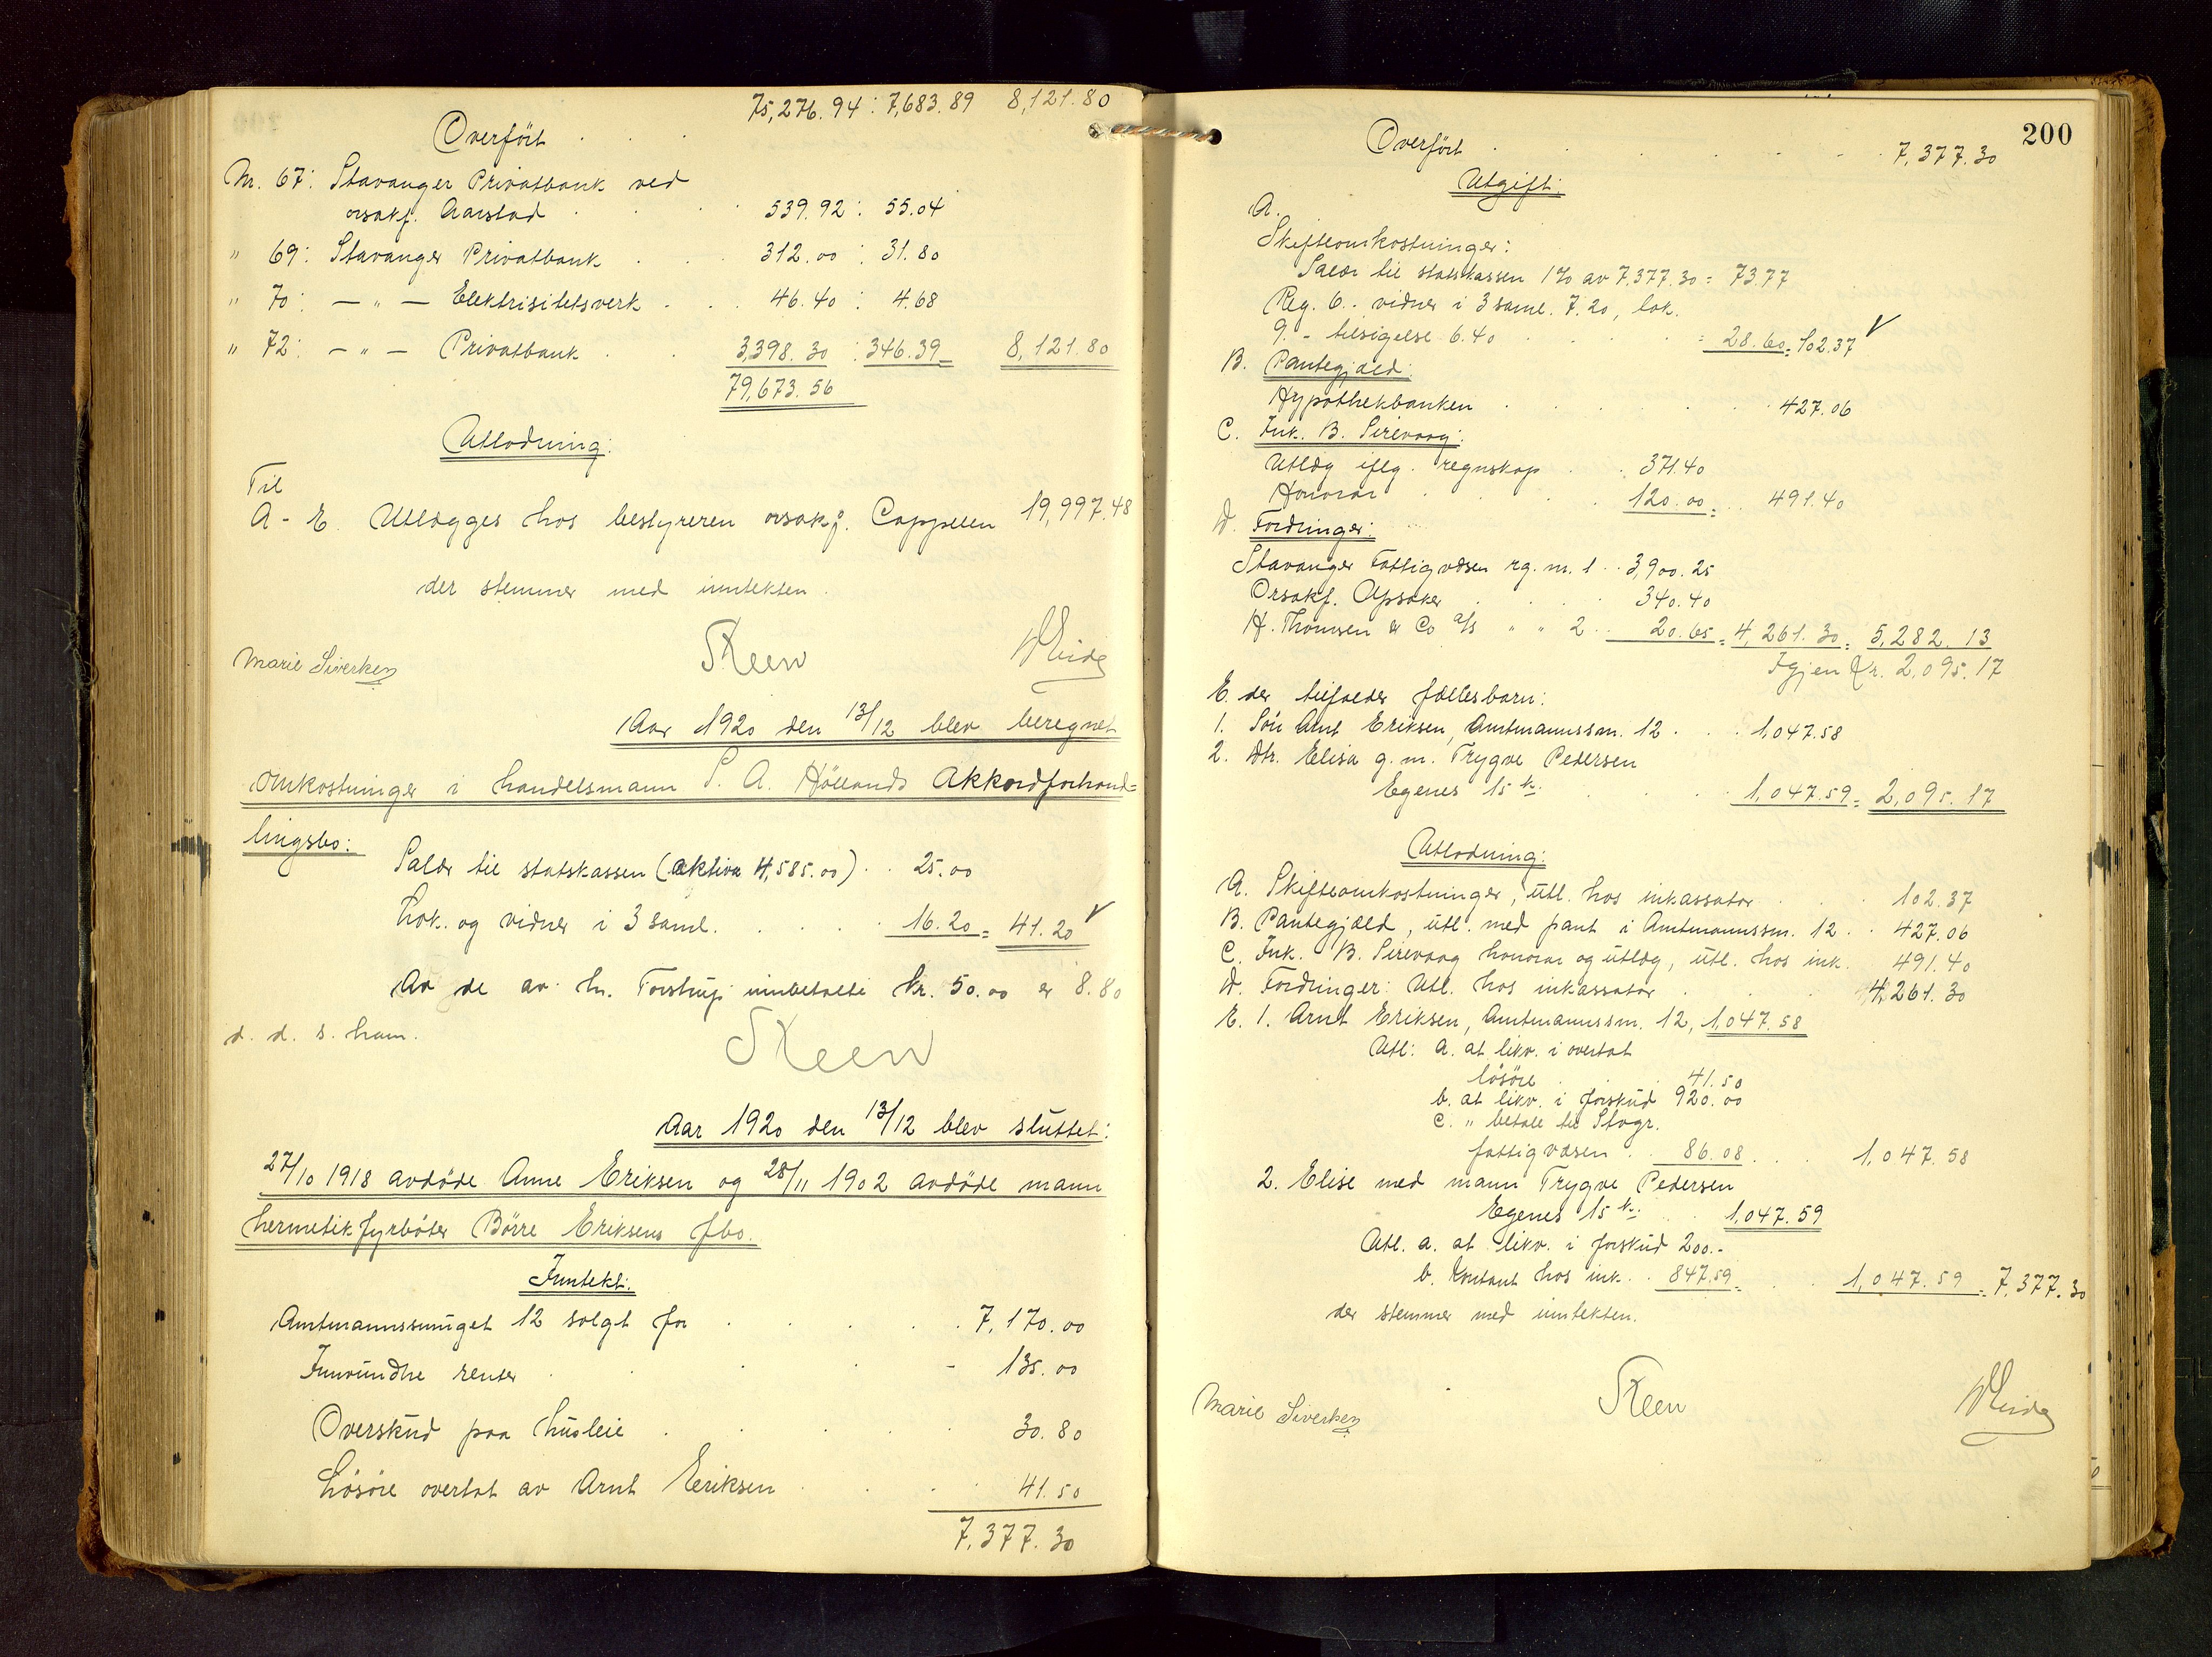 75,276.94 : 7,683.89 8,121.80
Overført
Nr. 67: Stavanger Privatbank ved
orsakf. Aarstad 539.92 : 55.04
" 69: Stavanger Privatbank 312.00 : 31.80
" 70: — " — Elektrisitetsverk 46.40 : 4.68
" 72: — " — Privatbank 3,398.30 : 346.39 = 8,121.80
79,673.56
Utlodning:
Til
A - E. Utlægges hos bestyreren orsakf. Cappelen 19,997.48
der stemmer med inntekten.
Marie Siverksen Steen
Aar 1920 den 13/12 blev beregnet
omkostninger i handelsmann S. A. Høllands Akkordforhand=
lingsbo:
Salær til statskassen (aktiva 4,585.00) 25.00
Lok. og vidner i 3 saml. 16.20 = 41.20 √
Av de av hr. Torstrup innbetalte kr. 50.00 er 8.80
d. d. s. ham. Steen
Aar 1920 den 13/12 blev sluttet:
27/10 1918 avdøde Anne Eriksen og 28/11 1902 avdøde mann
hermetikfyrbøter Børre Eriksens fbo.
Inntekt:
Amtmannssmuget 12 solgt for 7,170.00
Innvundne renter 135.00
Overskud paa husleie 30.80
Løsøre overtat av Arnt Eriksen 41.50
7,377.30
200
Overført 7,377.30
Utgift:
A.
Skifteomkostninger:
Salær til statskassen 1% av 7,377.30 = 73.77
Reg. 6. vidner i 3 saml. 7.20, lok.
9. - tilsigelse 6.40 = 28.60 = 102.37 √
B. Pantegjæld:
Hypothekbanken 427.06
C. Ink. B. Sirevaag:
Utlæg iflg. regnskap 371.40
Honorar 120.00 = 491.40
D. Fordringer:
Stavanger Fattigvæsen rg. nr. 1 3,900.25
Orsakf. Apsaker 340.40
H. Thomsen & Co a/s " " 2 20.65 = 4,261.30 = 5,282.13
Igjen Kr. 2,095.17
E. der tilfalder fællesbarn:
1. Søn Arnt Eriksen, Amtmannssm. 12 1,047.58
2. Dtr. Elisa g. m. Trygve Pedersen
Egenes 15 kr. 1,047.59 = 2,095.17
Utlodning:
A. Skifteomkostninger, utl. hos inkassator 102.37
B. Pantegjæld, utl. med pant i Amtmannssm. 12 427.06
C. Ink. B. Sirevaag honorar og utlæg, utl. hos ink. 491.40
D. Fordringer: Utl. hos inkassator 4,261.30
E. 1. Arnt Eriksen, Amtmannssm. 12, 1,047.58
Utl: a. at likv. i overtat
løsøre 41.50
b. at likv. i forskud 920.00
c. " betale til Stvgr.
fattigvæsen 86.08 1,047.58
2. Elise med mann Trygve Pedersen
Egenes 15 kr. 1,047.59
Utl. a. at likv. i forskud 200.-
b. Kontant hos ink. 847.59 = 1,047.59 = 7,377.30
der stemmer med inntekten.
Marie Siverksen Steen